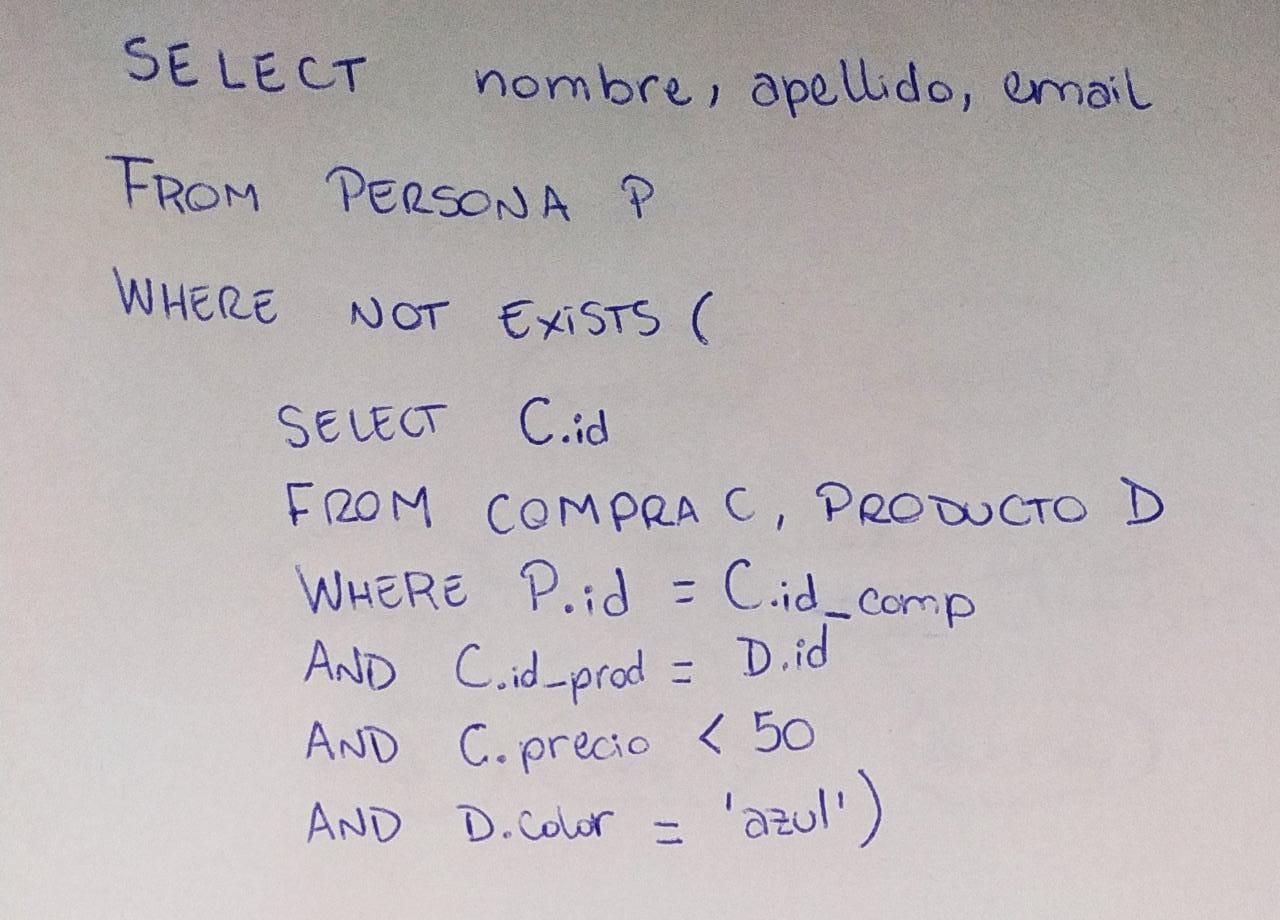 SELECT nombre, apellido, email
FROM PERSONA P
WHERE NOT EXISTS (
SELECT C.id
FROM COMPRA C, PRODUCTO D
WHERE P.id = C.id_comp
AND C.id_prod = D.id
AND C.precio < 50
AND D.color = 'azul')